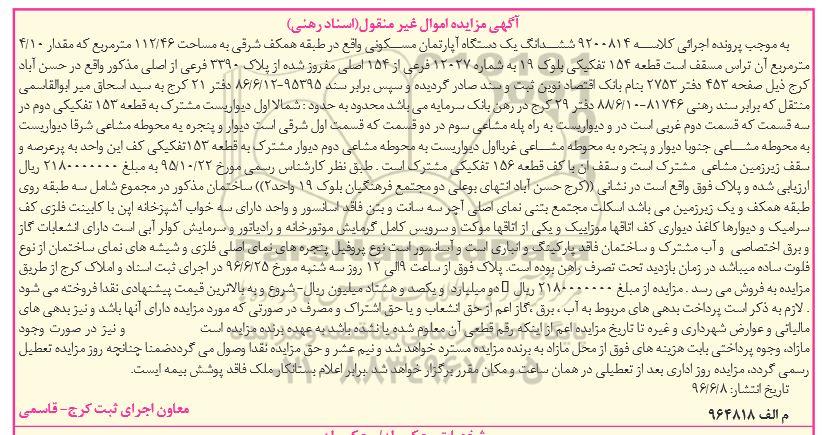 آگهی مزایده اموال غیر منقول(اسناد رهنی)
به موجب پرونده اجرائی کلاسه ۹۲۰۰۸۱۴ ششدانگ یک دستگاه آپارتمان مسکونی واقع در طبقه همکف شرقی به مساحت ۱۱۲/۴۶ مترمربع که مقدار ۴/۱۰
مترمربع آن تراس مسقف است قطعه ۱۵۴ تفکیکی بلوک ۱۹ به شماره ۱۲۰۲۷ فرعی از ۱۵۴ اصلی مفروز شده از پلاک ۳۳۹۰ فرعی از اصلی مذکور واقع در حسن آباد
کرج ذیل صفحه ۴۵۳ دفتر ۲۷۵۳ بنام بانک اقتصاد نوین ثبت و سند صادر گردیده و سپس برابر سند ۹۵۳۹۵-۸۶/۶/۱۲ دفتر ۲۱ کرج به سید اسحاق میر ابوالقاسمی
منتقل که برابر سند رهنی ۸۱۷۴۶-۸۸/۶/۱۰ دفتر ۲۹ کرج در رهن بانک سرمایه می باشد محدود به حدود : شمالا اول دیواریست مشترک به قطعه ۱۵۳ تفکیکی دوم در
سه قسمت که قسمت دوم غربی است در و دیواریست به راه پله مشاعی سوم در دو قسمت که قسمت اول شرقی است دیوار و پنجره به محوطه مشاعی شرقا دیواریست
به محوطه مشاعی جنوبا دیوار و پنجره به محوطه مشاعی غربااول دیواریست به محوطه مشاعی دوم دیوار مشترک به قطعه ۱۵۳تفکیکی کف این واحد به پرعرصه و
سقف زیرزمین مشاعی مشترک است و سقف آن با کف قطعه ۱۵۶ تفکیکی مشترک است . طبق نظر کارشناس رسمی مورخ ۹۵/۱۰/۲۲ به مبلغ ۲۱۸۰۰۰۰۰۰۰ ریال
ارزیابی شده و پلاک فوق واقع است در نشانی ((کرج حسن آباد انتهای بوعلی دو مجتمع فرهنگیان بلوک ۱۹ واحد۲)) ساختمان مذکور در مجموع شامل سه طبقه روی
طبقه همکف و یک زیرزمین می باشد اسکلت مجتمع بتنی نمای اصلی آجر سه سانت و بتن فاقد آسانسور و واحد دارای سه خواب آشپزخانه اپن با کابینت فلزی کف
سرامیک و دیوارها کاغذ دیواری کف اتاقها موزاییک و یکی از اتاقها موکت و سرویس کامل گرمایش موتورخانه و رادیاتور و سرمایش کولر آبی است دارای انشعابات گاز
و برق اختصاصی و آب مشترک و ساختمان فاقد پارکینگ و انباری است و آسانسور است نوع پروفیل پنجره های نمای اصلی فلزی و شیشه های نمای ساختمان از نوع
فلوت ساده میباشد در زمان بازدید تحت تصرف راهن بوده است. پلاک فوق از ساعت ۹الی ۱۲ روز سه شنبه مورخ ۹۶/۶/۲۵ در اجرای ثبت اسناد و املاک کرج از طریق
مزایده به فروش می رسد . مزایده از مبلغ ۲۱۸۰۰۰۰۰۰۰ ریال دو میلیارد و یکصد و هشتاد میلیون ریال-شروع و به بالاترین قیمت پیشنهادی نقدا فروخته می شود
. لازم به ذکر است پرداخت بدهی های مربوط به آب ، برق ،گاز اعم از حق انشعاب و یا حق اشتراک و مصرف در صورتی که مورد مزایده دارای آنها باشد و نیز بدهی های
مالیاتی و عوارض شهرداری و غیره تا تاریخ مزایده اعم از اینکه رقم قطعی آن معلوم شده یا نشده باشد به عهده برنده مزایده است و نیز در صورت وجود
مازاد، وجوه پرداختی بابت هزینه های فوق از محل مازاد به برنده مزایده مسترد خواهد شد و نیم عشر و حق مزایده نقدا وصول می گرددضمنا چنانچه روز مزایده تعطیل
رسمی گردد، مزایده روز اداری بعد از تعطیلی در همان ساعت و مکان مقرر برگزار خواهد شد. برابر اعلام بستانکار ملک فاقد پوشش بیمه ایست.
تاریخ انتشار: ۹۶/۶/۸
م الف ۹۶۴۸۱۸
معاون اجرای ثبت کرج- قاسمی